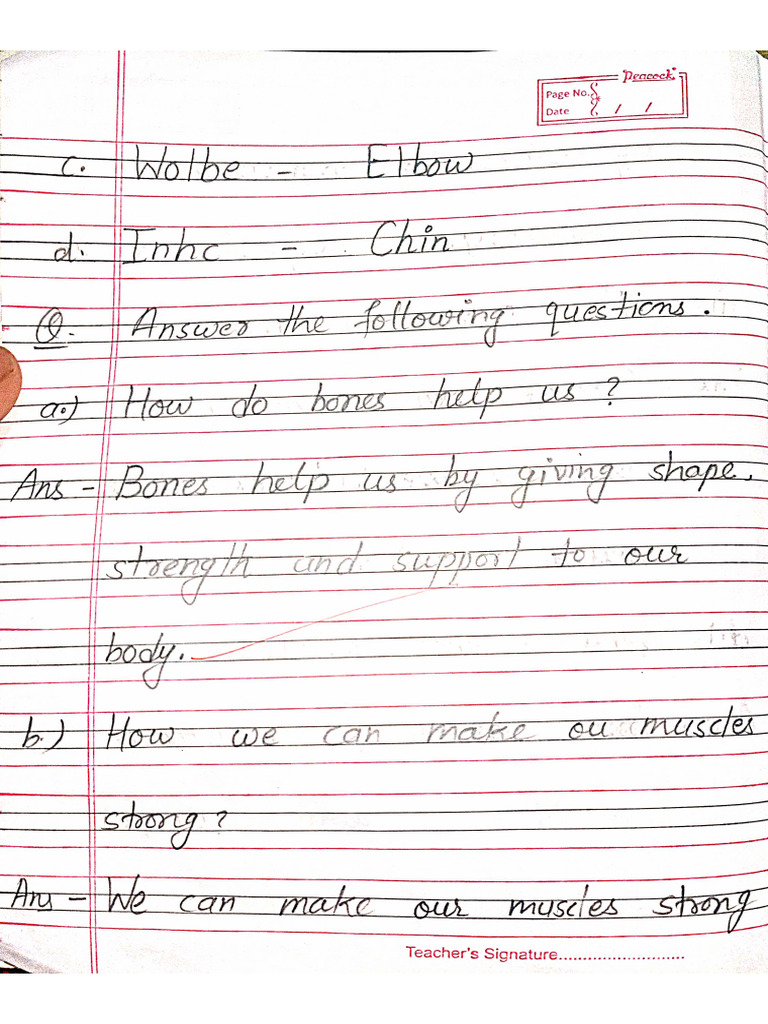 Peacock
Page No.
Date / /
c. Wolbe - Elbow
d. Inhc - Chin
Q. Answer the following questions.
a.) How do bones help us ?
Ans - Bones help us by giving shape,
strength and support to our
body.
b.) How we can make ou muscles
strong ?
Ans - We can make our muscles strong
Teacher's Signature..........................